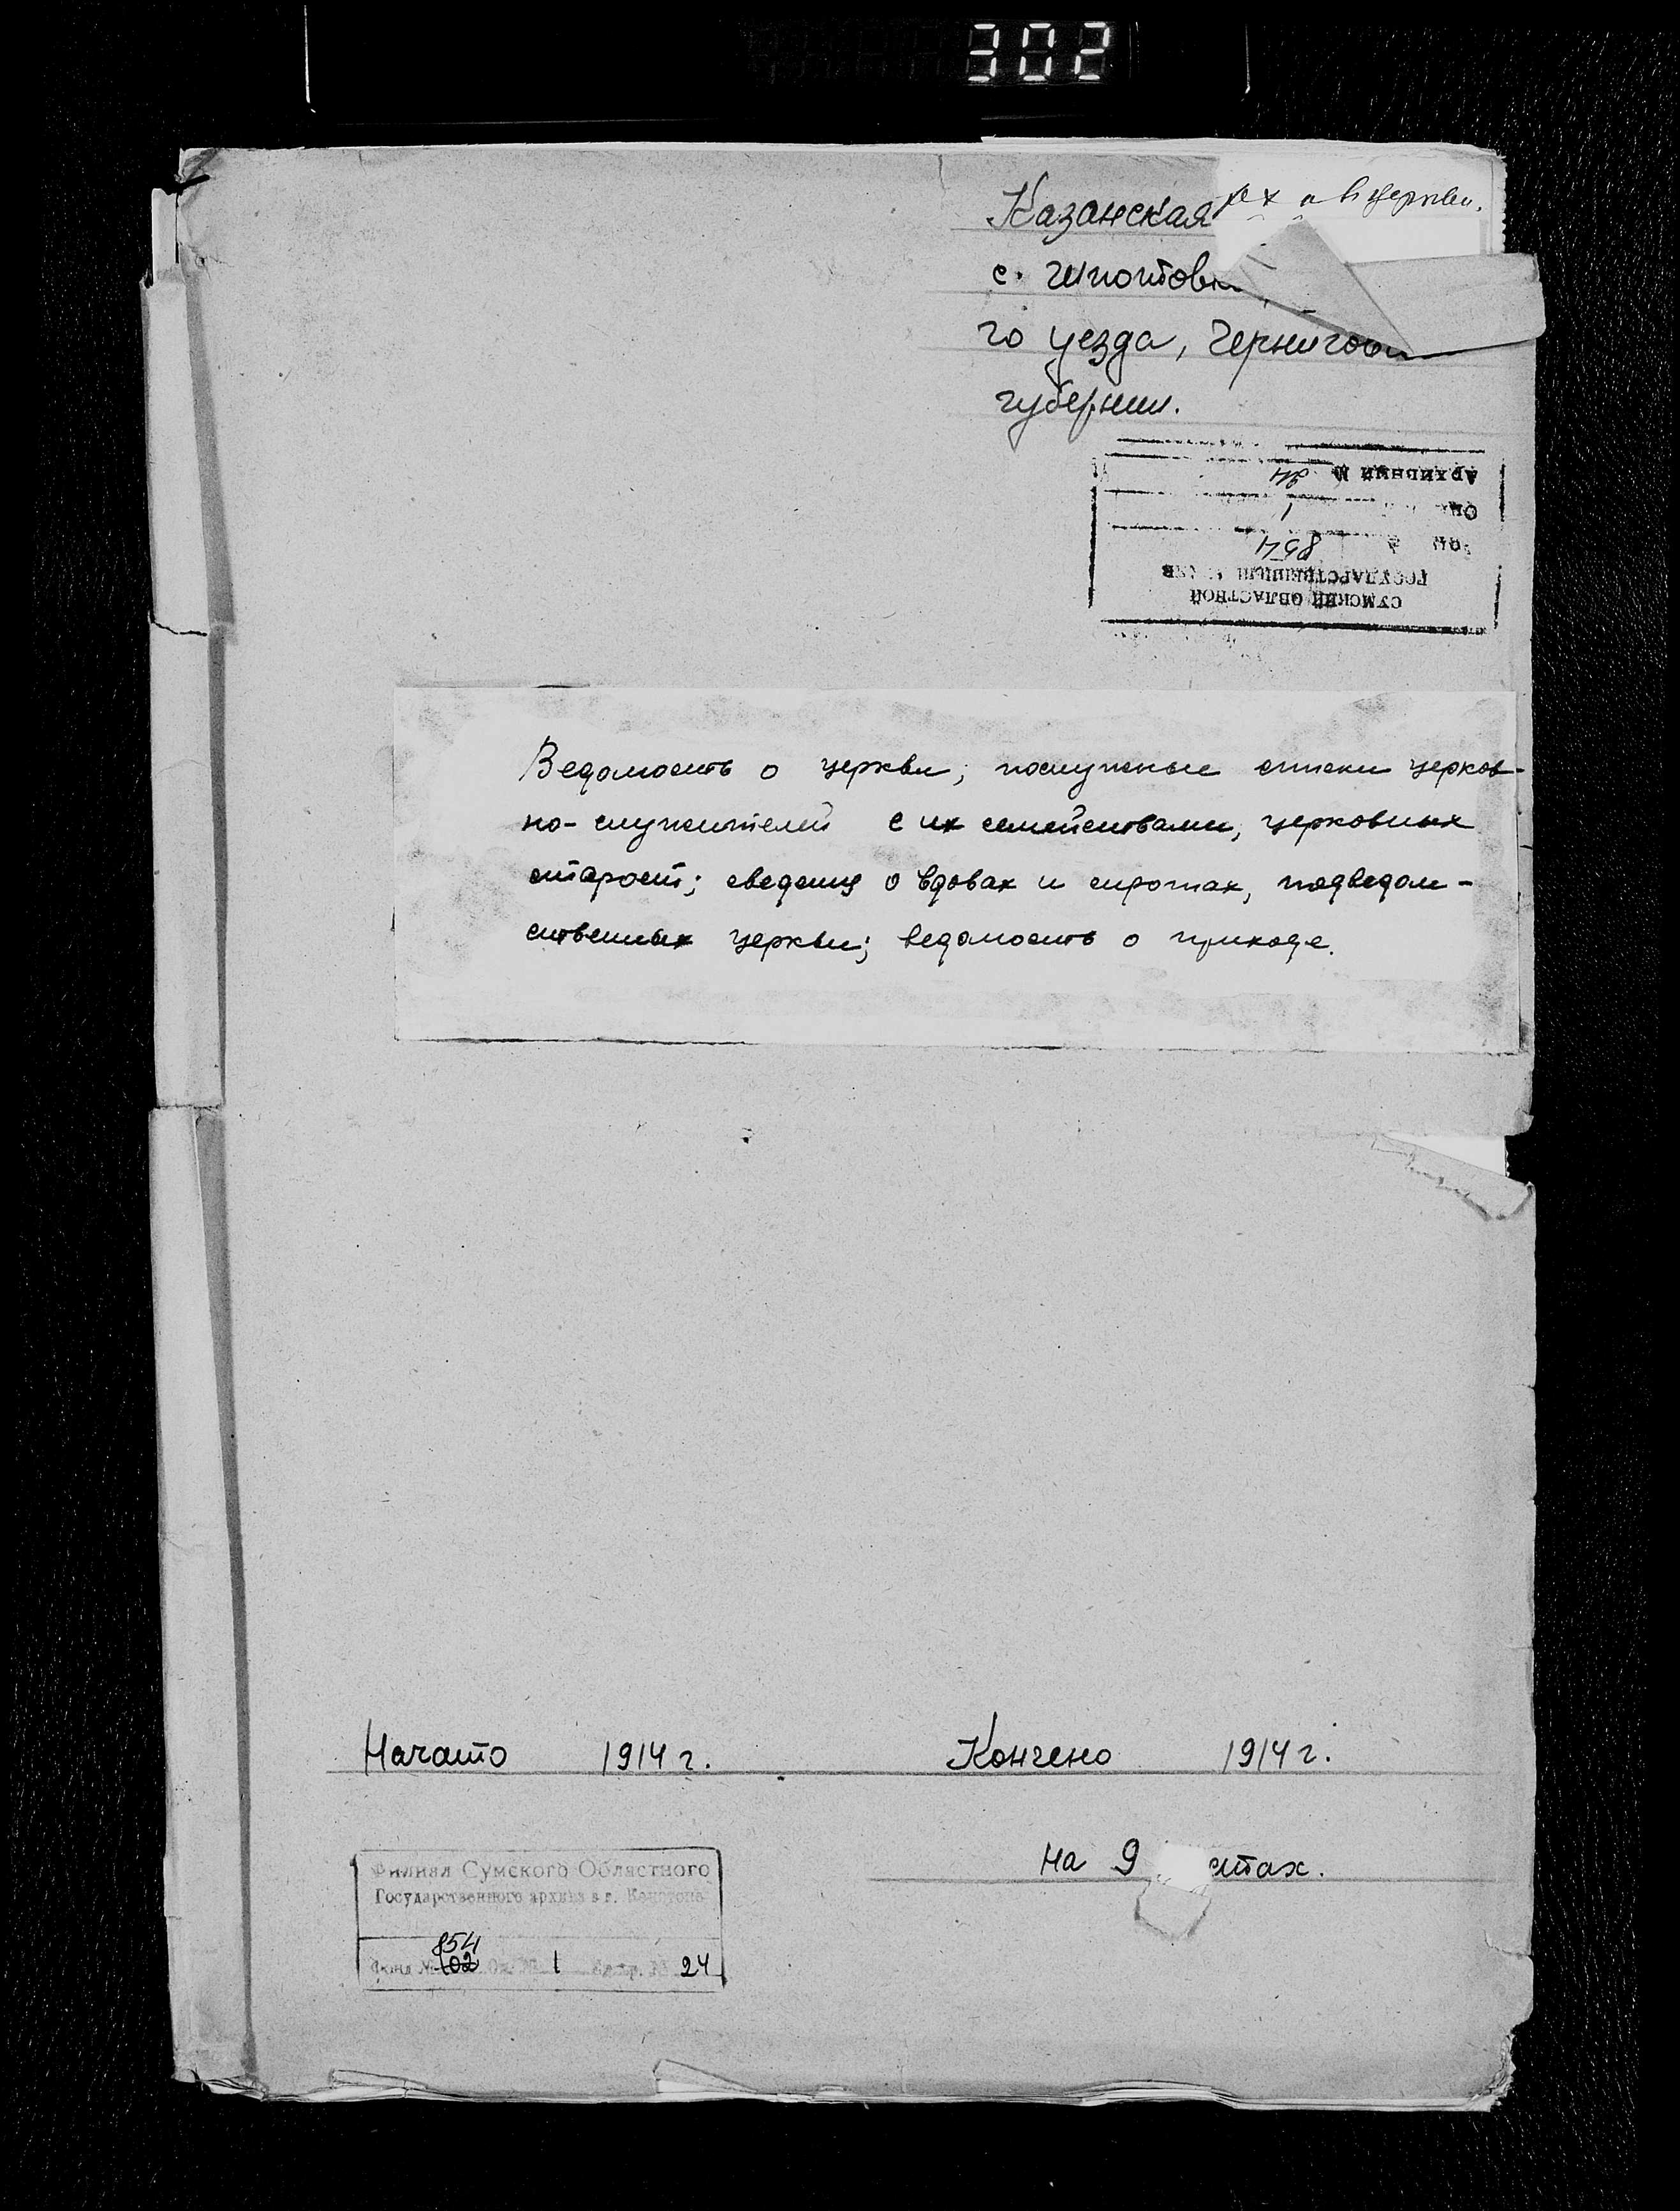 302
Казанская
церкви.
с. Шпотовк
го уезда, Чернигов
губернии.
АРХИВНЫЙ № 24
1
854
ГОСУДАРСТВЕННЫЙ
СУМСКИЙ ОБЛАСТНОЙ
Ведомость о церкви; послужные списки церков-
но-служителей с их семействами, церковных
старост; сведения о вдовах и сиротах, подведом-
ственных церкви; ведомость о приходе.
Начато 1914 г. Кончено 1914 г.
на 9 стах.
Филиал Сумского Областного
Государственного архива в г. Конотопе
854
Фонд № 102 Оп. № 1 Ед. хр. № 24